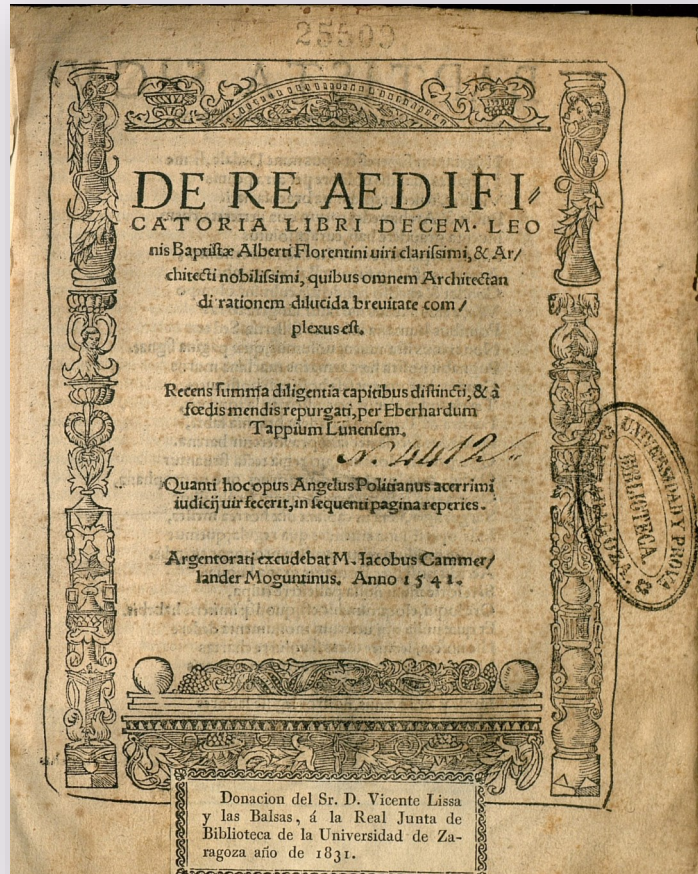 25509
DE RE AEDIFI-
CATORIA LIBRI DECEM. LEO
nis Baptistæ Alberti Florentini uiri clariſsimi, & Ar/
chitecti nobiliſsimi, quibus omnem Architectan
di rationem dilucida breuitate com /
plexus eſt.
Recens ſumma diligentia capitibus diſtincti, & à
fœdis mendis repurgati, per Eberhardum
Tappium Lunenſem.
N. 4412
Quanti hoc opus Angelus Politianus acerrimi
iudicij uir fecerit, in ſequenti pagina reperies.
Argentorati excudebat M. Iacobus Cammer/
lander Moguntinus. Anno 1541.
UNIVERSIDAD Y PROVA
BIBLIOTECA.
Donacion del Sr. D. Vicente Lissa
y las Balsas, á la Real Junta de
Biblioteca de la Universidad de Za-
ragoza año de 1831.